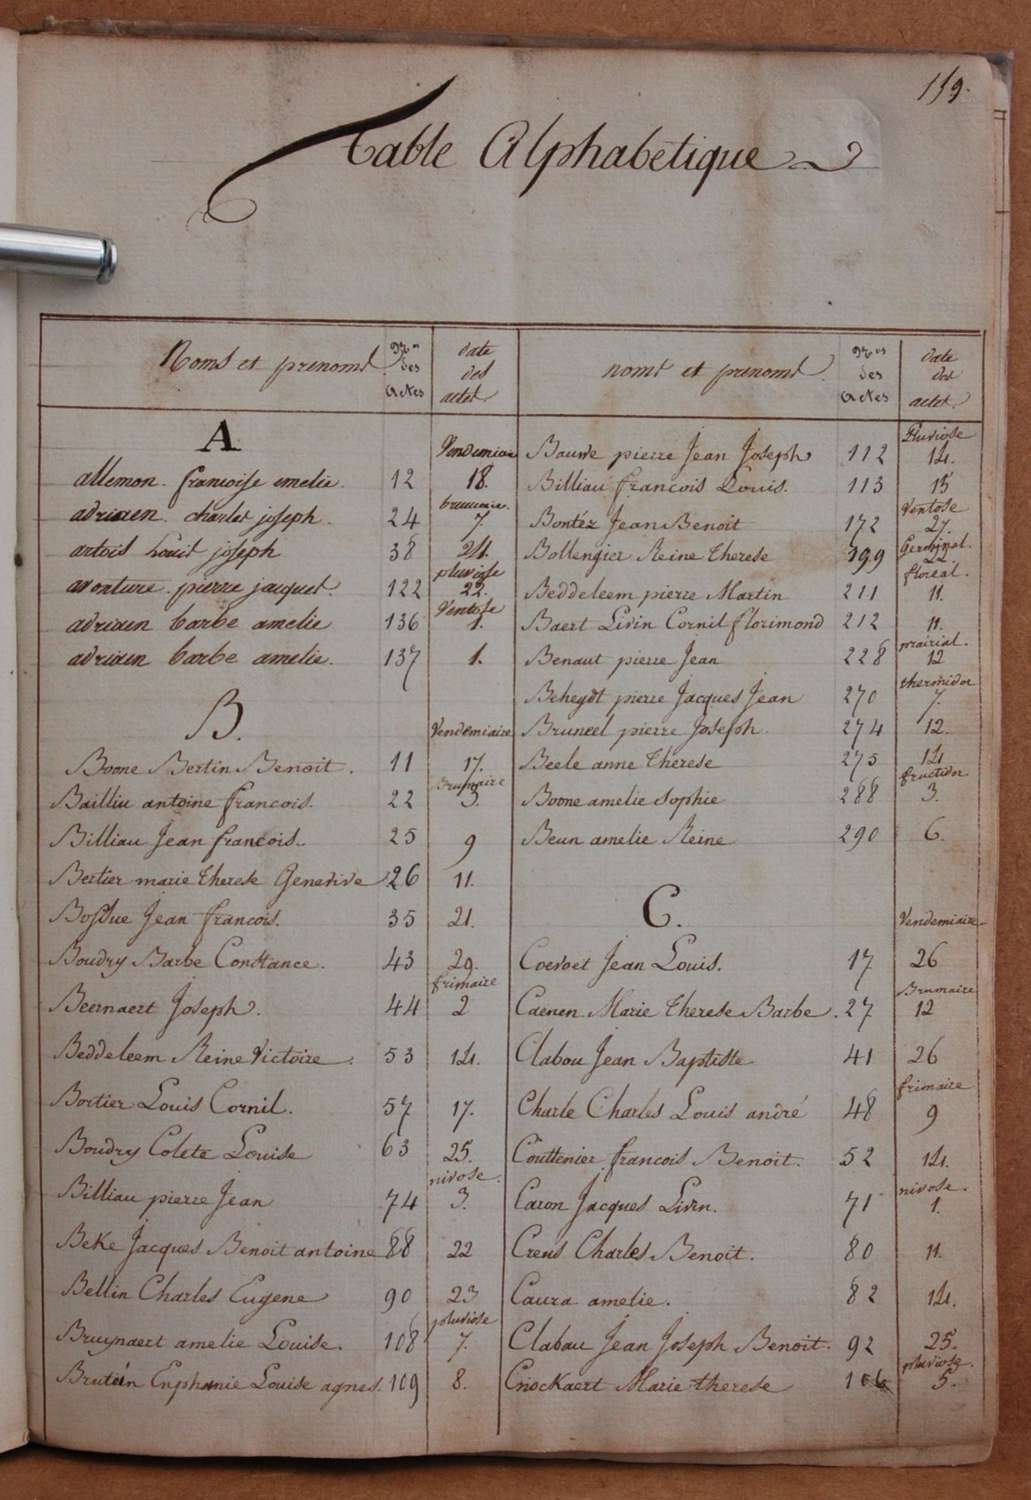 159.
Table Alphabetique
Noms et prenoms
Nros des Actes
date des actes
A
Vendemiaire
allemon. francoise emelie. 12 18.
brumaire.
adriaen. charles joseph. 24 7
artois Louis joseph 38 24.
pluviose
avonture. pierre jacques. 122 22.
Ventose
adriaen barbe amelie 136 1.
adriaen barbe amelie. 137 1.
B.
Vendemiaire
Boone Bertin Benoit. 11 17.
Brumaire
Bailliu antoine francois. 22 3.
Billiau Jean francois. 25 9
Bertier marie therese Genevive 26 11.
Bosdue Jean francois. 35 21.
Boudry Barbe Constance. 43 29.
frimaire
Beernaert Joseph. 44 2
Beddeleem Reine Victoire. 53 14.
Bortier Louis Cornil. 57 17.
Boudry Colete Louise 63 25.
nivose.
Billiau pierre Jean 74 3.
Beke Jacques Benoit antoine 88 22
Bellin Charles Eugene 90 23
pluviose
Bruynaert amelie Louise. 108 7.
Brutein Enphanie Louise agnes. 109 8.
noms et prenoms.
Nros des Actes
date des actes.
Pluviose
Bauwe pierre Jean Joseph 112 14.
Billiau francois Louis. 113 15
Ventose
Bontéz Jean Benoit 172 27.
Germinal.
Bollengier Reine therese 199 22
floreal.
Beddeleem pierre Martin 211 11.
Baert Livin Cornil florimond 212 11.
prairial.
Benaut pierre Jean 228 12
thermidor
Beheydt pierre Jacques Jean 270 7.
Bruneel pierre Joseph. 274 12.
Beele anne therese 275 14
fructidor
Boone amelie Sophie 288 3.
Beun amelie Reine 290 6.
C.
Vendemiaire
Coevoet Jean Louis. 17 26
Brumaire
Caenen Marie therese Barbe. 27 12
Clabou Jean Baptiste 41 26
frimaire
Charle Charles Louis andré 48 9
Coüttenier francois Benoit. 52 14.
nivose.
Caron Jacques Livin. 71 1.
Creus Charles Benoit. 80 11.
Caura amelie. 82 14.
Clabau Jean Joseph Benoit. 92 25.
pluviose.
Cnockaert Marie therese 106 5.